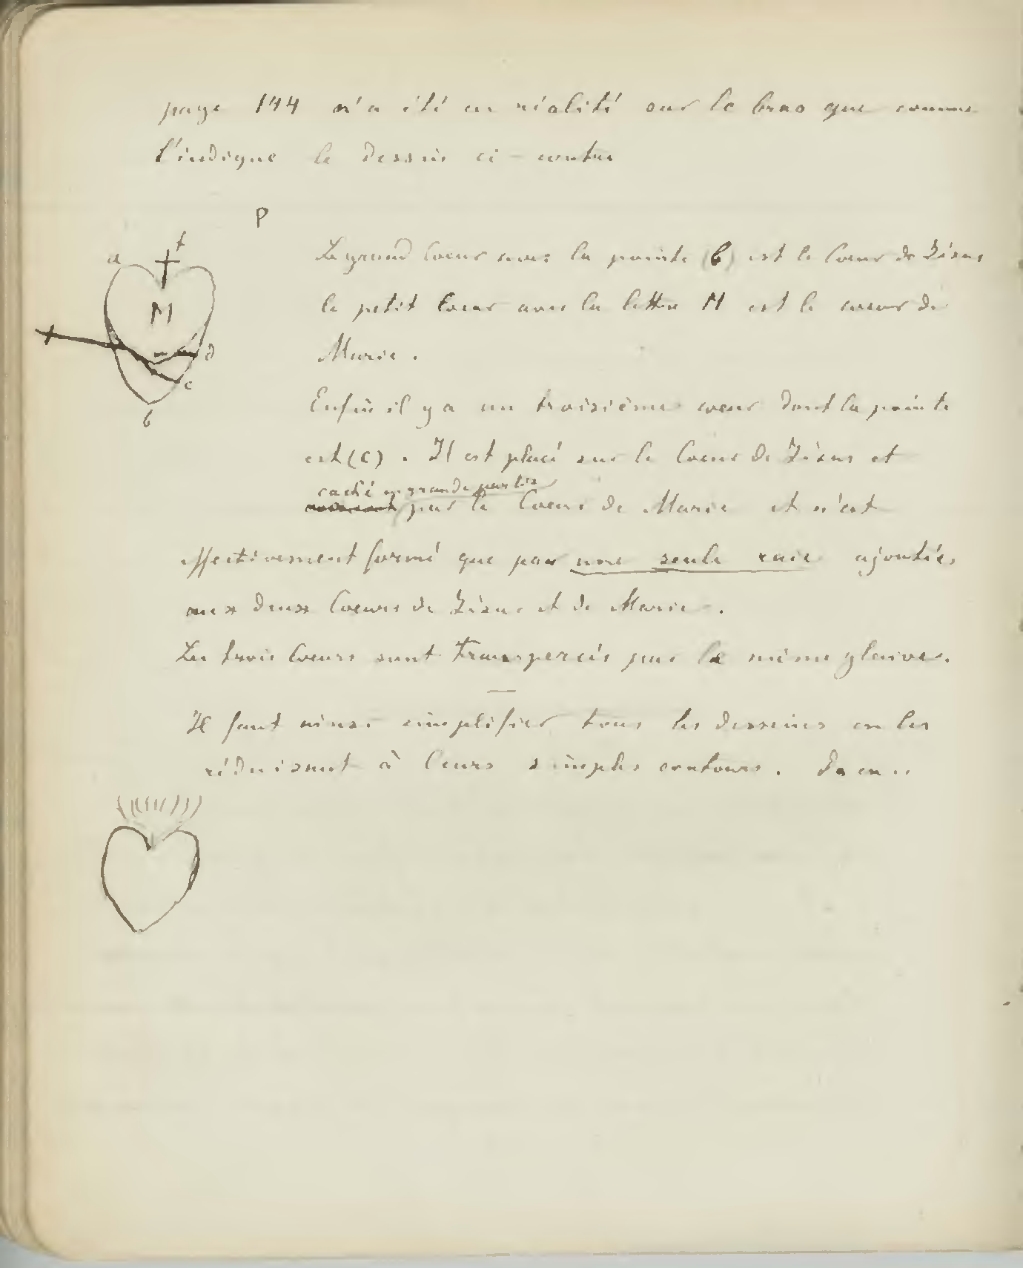 page 144 n'a été en réalité sur le bras que comme
l'indique le dessin ci-contre
P
Le grand Coeur avec la pointe (b) est le Coeur de Jésus
le petit Coeur avec la lettre M est le coeur de
Marie.
Enfin il y a un troisième coeur dont la pointe
est (c). Il est placé sur le Coeur de Jésus et
caché en grande partie
par le Coeur de Marie et n'est
effectivement formé que par une seule raie ajoutée
aux deux Coeurs de Jésus et de Marie.
Les trois Coeurs sont transpercés par le même glaive.
Il faut ainsi simplifier tous les dessins en les
réduisant à leurs simples contours.
a
M
d
c
b